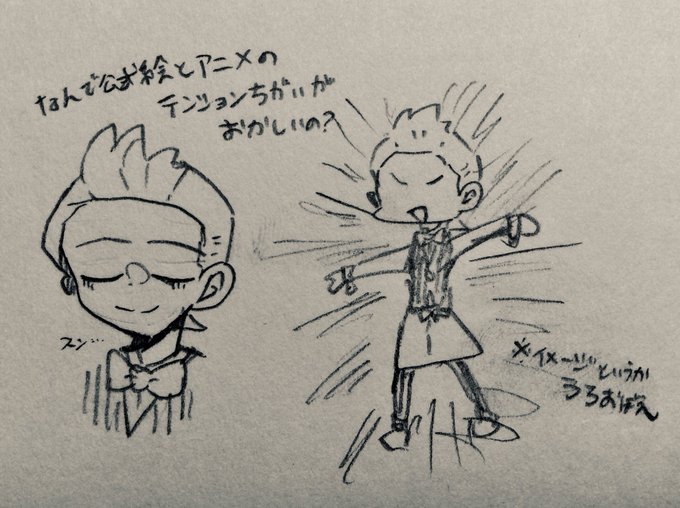 なんで公式絵とアニメの
テンションちがいが
おかしいの?
スン…
※イメージというか
うろおぼえ